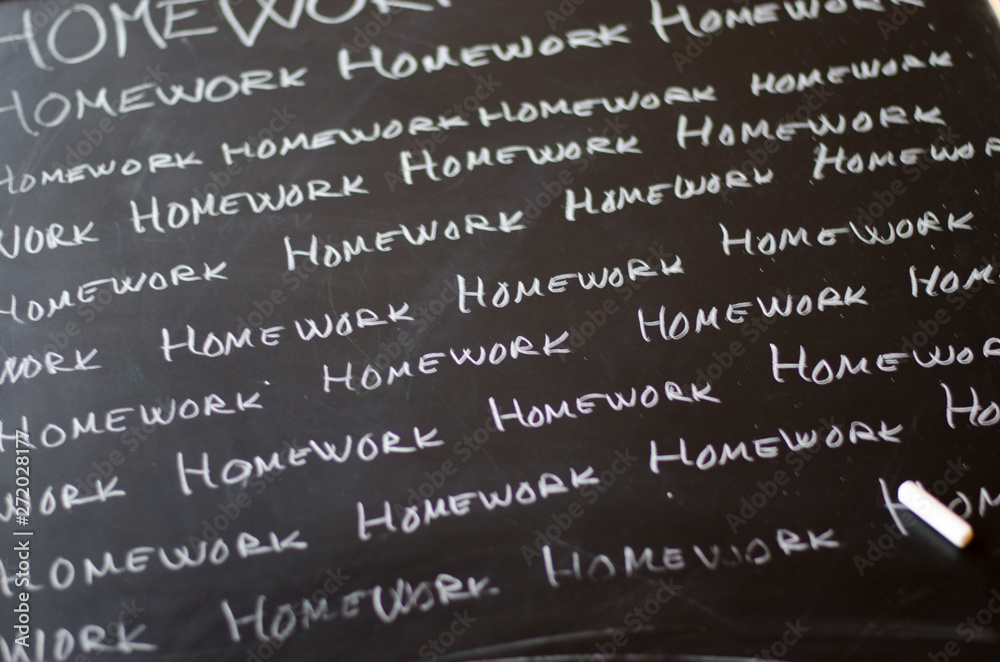 HOMEWORK
HOMEWORK HOMEWORK HOMEWORK
HOMEWORK HOMEWORK HOMEWORK HOMEWORK
WORK HOMEWORK HOMEWORK HOMEWORK
HOMEWORK HOMEWORK HOMEWORK HOMEWOR
WORK HOMEWORK HOMEWORK HOMEWORK
HOMEWORK HOMEWORK HOMEWORK HOM
WORK HOMEWORK HOMEWORK HOMEWOR
HOMEWORK HOMEWORK HOMEWORK HO
WORK HOMEWORK HOMEWORK HOM
Adobe Stock | #272028177